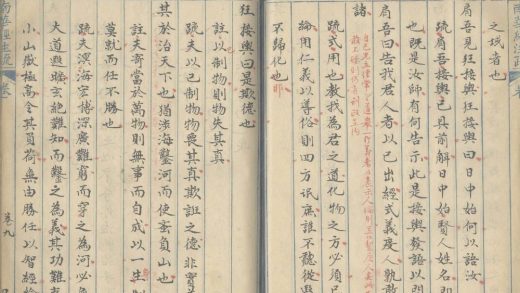 之域者也
肩吾見狂接輿曰日中始何以語汝
疏肩吾接輿已具前解日中始賢人姓名即
也既是汝師有何告示此是接輿發語以問
肩吾曰告我君人者以己出經式義度人孰敢
諸
疏式用也教我為君之道化物之方必須己
論用仁義以導俗則四方氓庶誰不聽從遐
不歸化也耶
狂接輿曰是欺德也
註以制物則物失其真
疏夫以己制物物喪其真欺誑之德非實
其於治天下也猶涉海鑿河而使蚉負山也
註夫寄當於萬物則無事而自成以一生制
莫就而任不勝也
疏夫溟海宏博深廣難窮而穿之為河必
大道遐曠玄絕難知而鑿之為義其功難
小山嶽極高令其負荷無由勝任以智經
卷九